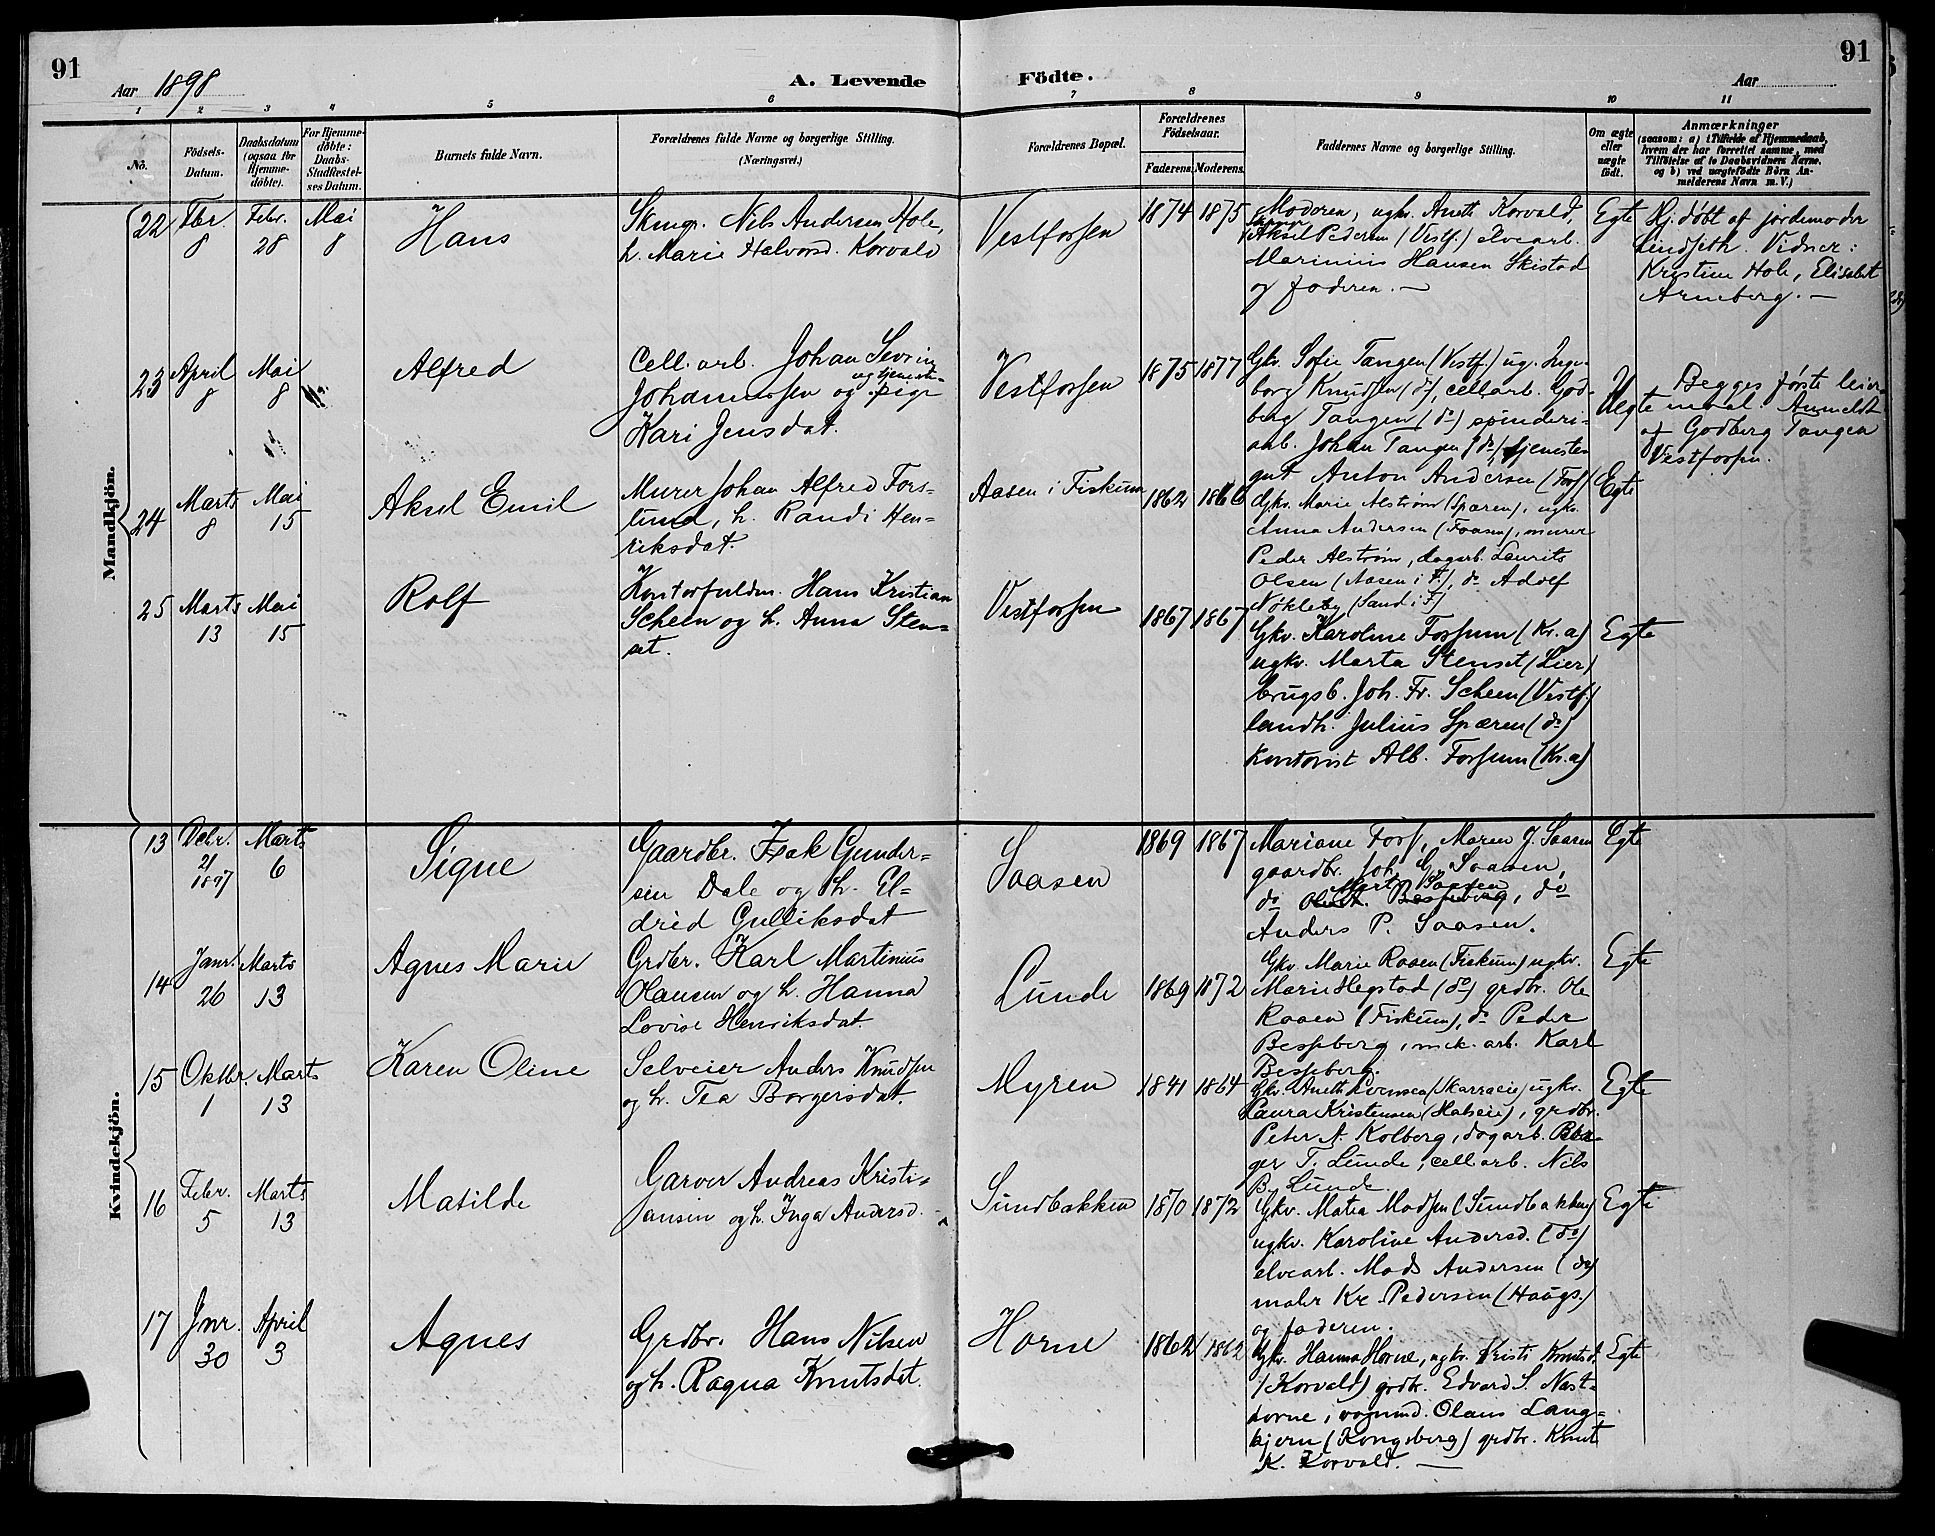 91
91
Aar 1898
A. Levende Födte.
Aar
1 2 3 4 5 6 7 8 9 10 11
No.
Födsels-Datum.
Daabsdatum (ogsaa for Hjemmedöbte).
For Hjemmedöbte: Daabs-Stadfæstelses Datum.
Barnets fulde Navn.
Forældrenes fulde Navne og borgerlige Stilling.
(Næringsvei.)
Forældrenes Bopæl.
Forældrenes Födselsaar.
Faderens. Moderens.
Faddernes Navne og borgerlige Stilling.
Om ægte eller uægte födt.
Anmærkninger
(saasom: a) i Tilfælde af Hjemmedaab,
hvem der har forrettet samme, med
Tilföielse af to Daabsvidners Navne.
og b) ved uægtefödte Börn Anmelderens Navn m. V.)
Mandkjön.
22 Fbr. 8 Febr. 28 Mai 8
Hans
Skmgr. Nils Andersen Hole,
h. Marie Halvorsd. Korvald
Vestfossen
1874 1875
Moderen, ugkv. Aneth Korvald,
Aksel Pedersen (Vestf.) elvearb.
Marinius Hansen Skistad
og faderen. —
Egte
Hj. döbt af jordemoder
Lindseth. Vidner:
Kristine Hole, Elisabet
Arneberg. —
23 April 8 Mai 8
Alfred
Cell. arb. Johan Sevrin
Johannessen og ug tjeneste-pige
Kari Jensdat.
Vestfossen
1875 1877
Gkv. Sofie Tangen (Vestf.) ug. Inge-
borg Knudsen (do), cellarb. God-
berg Tangen (do) spinderi-
arb. Johan Tangen (do), tjeneste-
gut Anton Andersen (Fosf)
Uegte
Begges förste leier-
maal. Anmeldt
af Godberg Tangen
Vestfossen.
24 Marts 8 Mai 15
Aksel Emil
Murer Johan Alfred Fors-
lund, h. Randi Hen-
riksdat.
Aasen i Fiskum
1862 1866
Gkv. Marie Alström (Spæren), ugkv.
Anna Andersen (Foasen), murer
Peder Alström, dagarb. Laurits
Olsen (Aasen i F.), do Adolf
Nökleby (Sand i F)
Egte
25 Marts 13 Mai 15
Rolf
Kontorfuldm. Hans Kristian
Scheen og h. Anna Sten-
set.
Vestfossen
1867 1867
Gkv. Karoline Fossum (Kr.a)
ugkv. Marta Stenset (Lier)
brugsb. Joh. Fr. Scheen (Vestf.)
landh. Julius Spæren (do)
kontorist Alb. Fossum (Kr.a)
Egte
Kvindekjön.
13 Debr. 21 1897 Marts 6
Signe
Gaardbr. Isak Gunder-
sen Dale og h. El-
drid Gulliksdat
Saasen
1869 1867
Mariane Fors, Maren J. Saasen
gaardbr. Joh. G. Saasen,
do Mart. Saasen, do
Anders P. Saasen.
Egte
14 Janr. 26 Marts 13
Agnes Marie
Grdbr. Karl Martinius
Olausen og h. Hanna
Lovise Henriksdat.
Lunde
1869 1872
Gkv. Marie Raaen (Fiskum) ugkv.
Marie Hegstad (do) grdbr. Ole
Raaen (Fiskum), do Peder
Besseberg, mek. arb. Karl
Besseberg.
Egte
15 Oktbr. 1 Marts 13
Karen Oline
Selveier Anders Knudsen
og h. Tea Borgersdat.
Myren
1841 1864
Gkv. Aneth Evensen (Skarraeie) ugkv.
Laura Kristensen (Halseie), grdbr.
Peter A. Kolberg, dagarb. Bor-
ger T. Lunde, cellarb. Nils
B. Lunde.
Egte
16 Febr. 5 Marts 13
Matilde
Garver Andreas Kristi-
ansen og h. Inga Andersd.
Sundbakken
1870 1872
Gkv. Matea Madsen (Sundbakken)
ugkv. Karoline Andersd. (do)
elvearb. Mads Andersen (do)
maler Kr. Pedersen (Haugs.)
og faderen.
Egte
17 Jnr. 30 April 3
Agnes
Grdbr. Hans Nilsen
og h. Ragna Knutsdat.
Horne
1862 1862
Gkv. Hanna Horne, ugkv. Kristi Knutsd.
(Korvald) grdbr. Edvard S. Nast-
horne, vognmd. Olaus Lang-
kjern (Kongsberg) grdbr. Knut
K. Korvald. —
Egte